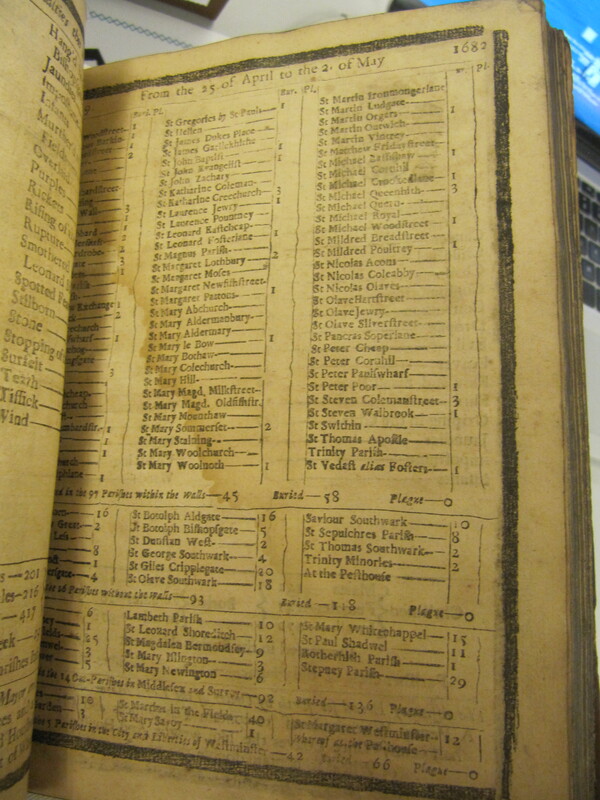 Hang'd
Jaund
Impost
Murther
Overlaid
Purples
Rickets
Rising of
Rupture
Smothered
Leonard
Spotted Fe
Stilborn
Stone
Stopping of
Surfeit
Teeth
Tissick
Wind
201
216
417
From the 25. of April to the 2. of May
1682
Buri. Pl.
St Gregories by St Pauls 1
St Hellen
St James Dukes Place
St James Garlickhithe
St John Baptist 1
St John Evangelist
St John Zachary
St Katharine Coleman
St Katharine Creechurch 3
St Laurence Jewry 1
St Laurence Pountney
St Leonard Eastcheap
St Leonard Fosterlane 1
St Magnus Parish
St Margaret Lothbury 2
St Margaret Moses
St Margaret Newfishstreet
St Margaret Pattons 1
St Mary Abchurch
St Mary Aldermanbury
St Mary Aldermary
St Mary le Bow 1
St Mary Bothaw
St Mary Colechurch
St Mary Hill
St Mary Magd. Milkstreet
St Mary Magd. Oldfishstr.
St Mary Mounthaw
St Mary Sommerset 2
St Mary Staining
St Mary Woolchurch
St Mary Woolnoth 1
Bur. Pl.
St Martin Ironmongerlane
St Martin Ludgate 1
St Martin Orgars
St Martin Outwich
St Martin Vintrey
St Matthew Fridaystreet
St Michael Bassishaw 1
St Michael Cornhil
St Michael Crookedlane 1
St Michael Queenhith 3
St Michael Quern
St Michael Royal
St Michael Woodstreet 1
St Mildred Breadstreet
St Mildred Poultrey 1
St Nicolas Acons
St Nicolas Coleabby
St Nicolas Olaves
St Olave Hartstreet
St Olave Jewry
St Olave Silverstreet
St Pancras Soperlane
St Peter Cheap
St Peter Cornhil
St Peter Paulswharf
St Peter Poor 1
St Steven Colemanstreet 3
St Steven Walbrook 1
St Swithin
St Thomas Apostle
Trinity Parish
St Vedast alias Fosters 1
in the 97 Parishes within the Walls 45 Buried 58 Plague 0
16
2
8
1
4
St Botolph Aldgate 16
St Botolph Bishopsgate 5
St Dunstan West 2
St George Southwark 4
St Giles Cripplegate 20
St Olave Southwark 18
Saviour Southwark 10
St Sepulchres Parish 8
St Thomas Southwark 2
Trinity Minories 2
At the Pesthouse
16 Parishes without the Walls 93 Buried 118 Plague 0
6
1
25
3
5
Lambeth Parish 10
St Leonard Shoreditch 12
St Magdalen Bermondsey 9
St Mary Islington 3
St Mary Newington 6
St Mary Whitechappel 15
St Paul Shadwel 11
Rotherhith Parish 1
Stepney Parish 29
the 14 Out-Parishes in Middlesex and Surrey 92 Buried 136 Plague 0
10
1
St Martins in the Fields 40
St Mary Savoy 1
St Margaret Westminster 12
Whereof at the Pesthouse
5 Parishes in the City and Liberties of Westminster 42 Buried 66 Plague 0